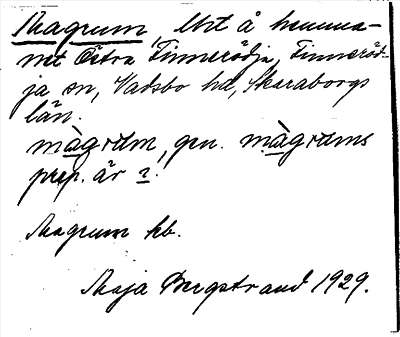 Magrum, lht å hemma-
net Östra Finnerödja, Finneröd-
ja sn, Vadsbo hd, Skaraborgs
län.
màgrum, gen. màgrums
prep. är ?.
Magrum kb.
Maja Bergstrand 1929.